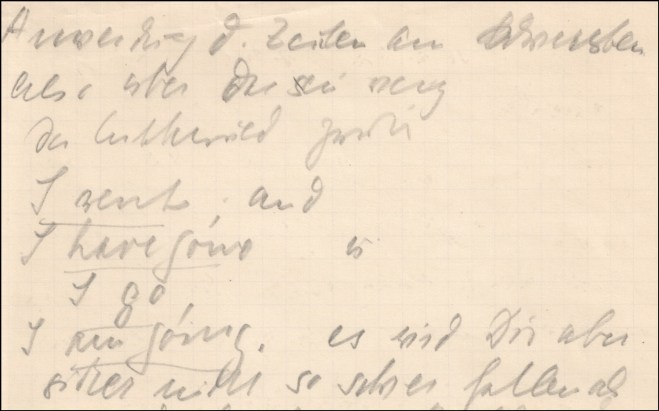 Anwendung d. Zeiten am schwersten
also über
der Unterschied zw.
I went, and
I have gone es
I go,
I am going. es wird Dir aber
sicher nicht so schwer fallen als